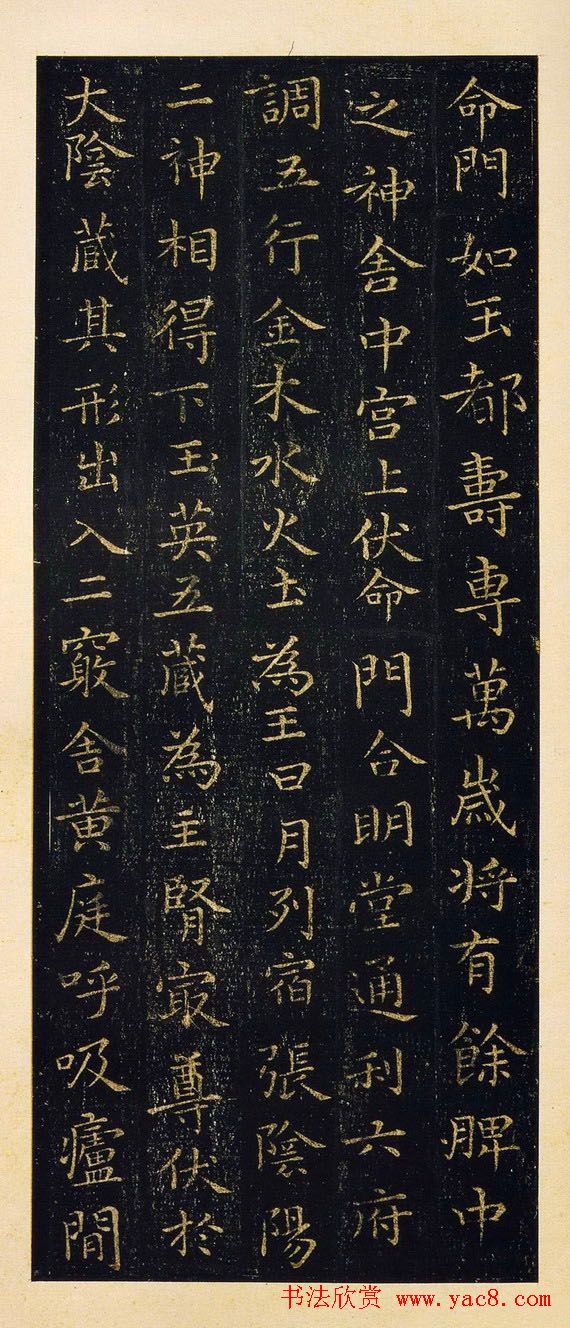 命門如玉都壽專萬歲将有餘脾中
之神舍中宫上伏命門合明堂通利六府
調五行金木水火土為王日月列宿張陰陽
二神相得下玉英五蔵為主腎㝡尊伏於
大陰蔵其形出入二竅舍黄庭呼吸廬間
书法欣赏 www.yac8.com